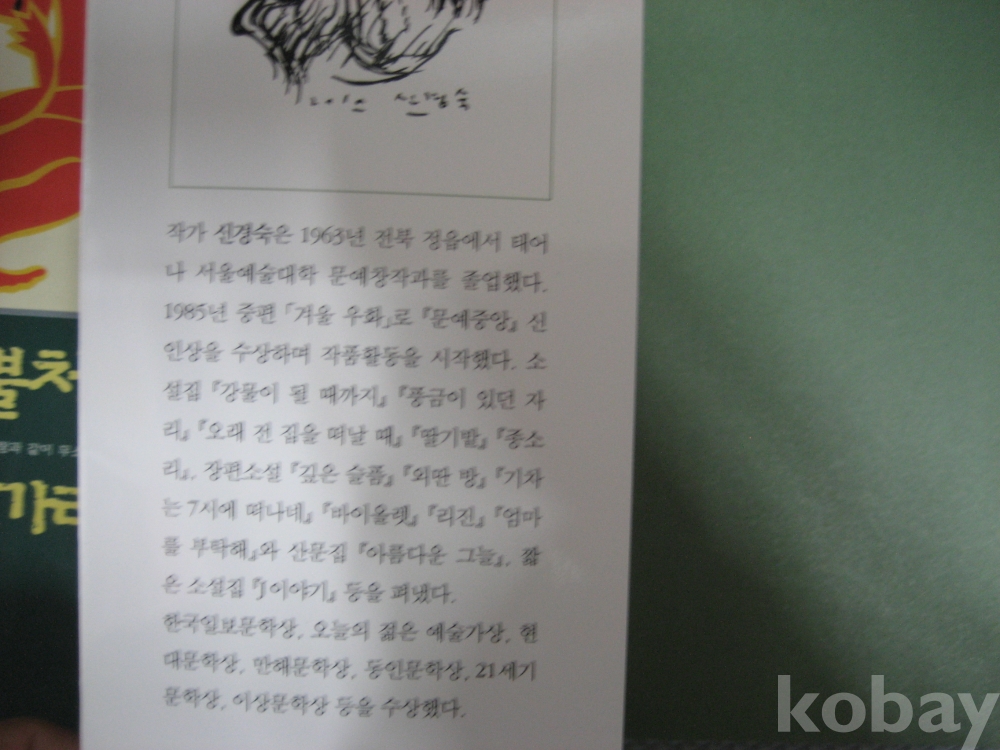 신경숙
작가 신경숙은 1963년 전북 정읍에서 태어
나 서울예술대학 문예창작과를 졸업했다.
1985년 중편 「겨울 우화」로 『문예중앙』 신
인상을 수상하며 작품활동을 시작했다. 소
설집 『강물이 될 때까지』 『풍금이 있던 자
리』 『오래 전 집을 떠날 때』 『딸기밭』 『종소
리』, 장편소설 『깊은 슬픔』 『외딴 방』 『기차
는 7시에 떠나네』 『바이올렛』 『리진』 『엄마
를 부탁해』와 산문집 『아름다운 그늘』, 짧
은 소설집 『J이야기』 등을 펴냈다.
한국일보문학상, 오늘의 젊은 예술가상, 현
대문학상, 만해문학상, 동인문학상, 21세기
문학상, 이상문학상 등을 수상했다.
불처
같이 무소
가라
kobay